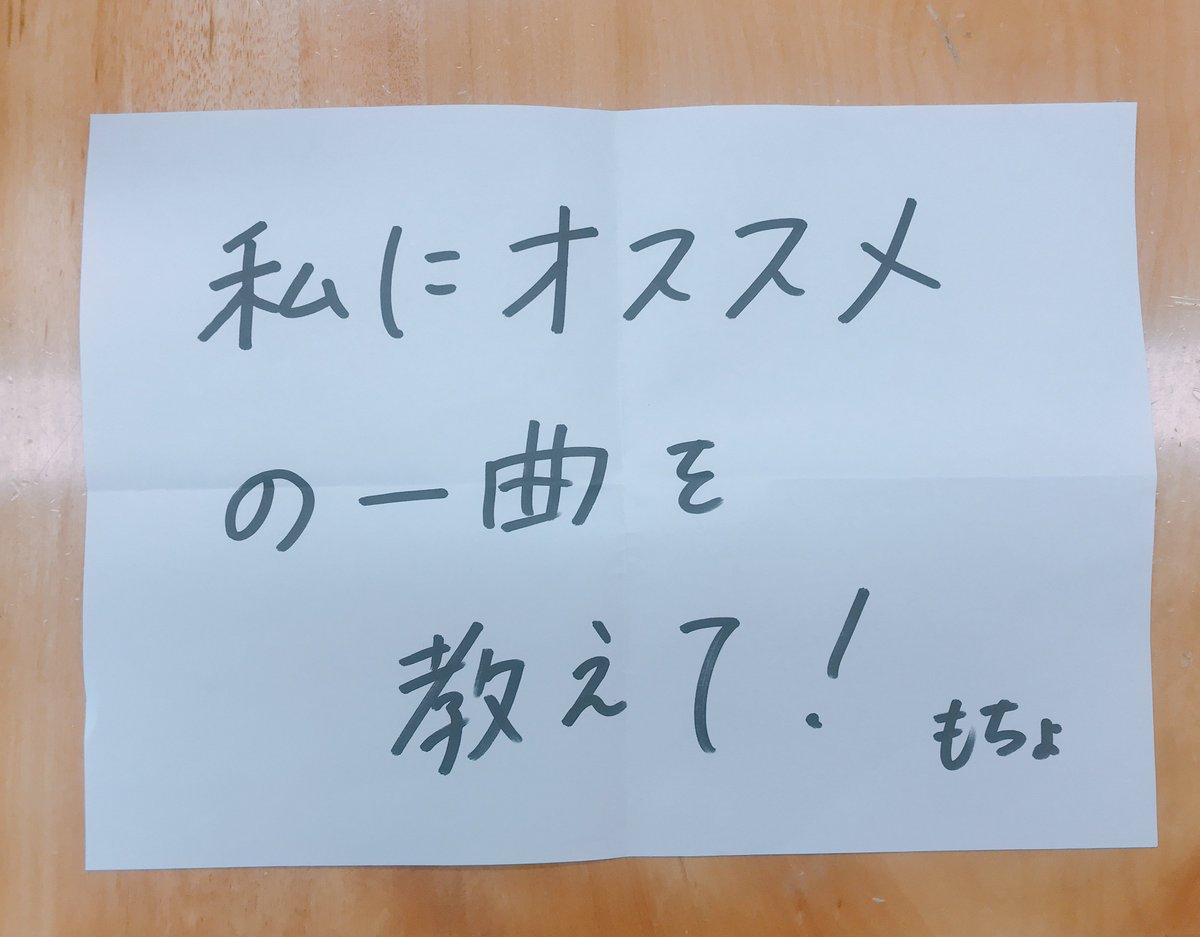 私にオススメ
の一曲を
教えて!
もちょ